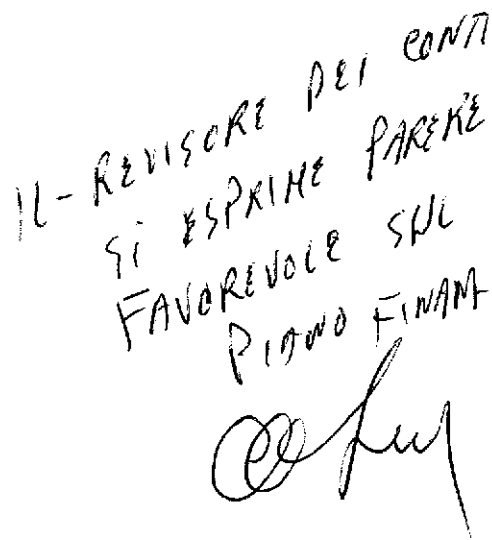 IL - REVISORE DEI CONTI
SI ESPRIME PARERE
FAVOREVOLE SUL
PIANO FINAN